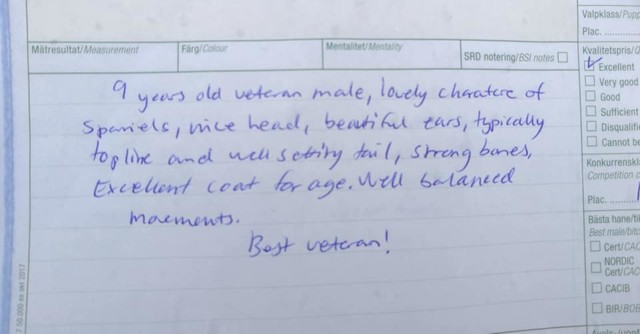 Mätresultat/Measurement
Färg/Colour
Mentalitet/Mentality
SRD notering/BSI notes
9 years old veteran male, lovely charatcre of
Spaniels, nice head, beautiful ears, typically
topline and well setting tail, strong bones,
Excellent coat for age. Well balanced
movements.
Best veteran!
Valpklass/Pupp
Plac.
Kvalitetspris/Q
Excellent
Very good
Good
Sufficient
Disqualifi
Cannot be
Konkurrenskl
Competition c
Plac.
Bästa hane/ti
Best male/bitc
Cert/CAC
NORDIC
Cert/CAC
CACIB
BIR/BOB
50.000 ex okt 2017